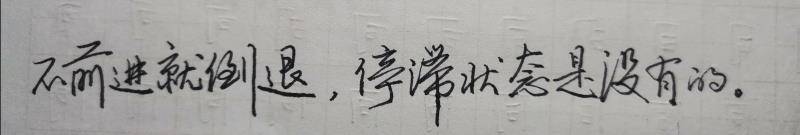 不前进就倒退，停滞状态是没有的。